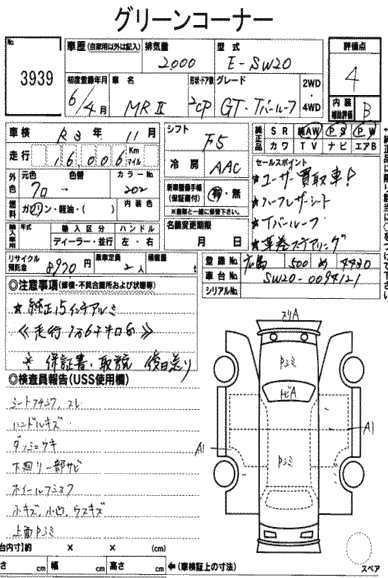 グリーンコーナー
No.
3939
車歴 (自家用以外は記入)
排気量
2000
型式
E-SW20
評価点
4
初度登録年月
6/4月
車名
MRⅡ
形状・ドア数
2CP
グレード
GT・Tバールーフ
2WD・4WD
内装補助評価
B
車検 R3年 11月
シフト
F5
純正品
SR AW PS PW
カワ TV ナビ エアB
走行 16006 Km マイル
冷房
AAC
セールスポイント
★ユーザー買取車!
★ハーフレザーシート
★Tバールーフ
★革巻ステアリング
元色
70
色替
カラーNo.
202
燃料
ガソリン・軽油・( )
内装色
新車整備手帳(保証書付)
有・無
輸入車
輸入区分
ハンドル
ディーラー・並行
左・右
名義変更期限
月 日
リサイクル預託金
8970円
乗車定員
2人
積載量
登録No. 広島 500 め 4430
車台No. SW20-0094121
シリアルNo.
◎注意事項(修復・不具合箇所および状態等)
★純正15インチアルミ
《走行1万6千キロ台》
★保証書・取説 後日送り
◎検査員報告(USS使用欄)
シートコゲ、スレ
ハンドルキズ
ダッシュヤケ
下回り一部サビ
ホイールキズ
小キズ、小凹、ウスキズ
上面Pヨミ
スリA
Pヨミ
ガラスA
A1
A1
Pヨミ
荷台内寸)約 × × (cm)
長さ cm 幅 cm 高さ cm
←(車検証上の寸法)
スペア